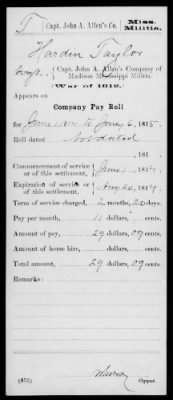 T Capt. John A. Allen's Co. Miss. Militia.
Hardin Taylor
Capt. John A. Allen's Company of Madison Mississippi Militia.
(War of 1812.)
Appears on
Company Pay Roll
for June 1814 to Jany 6, 1815.
Roll dated Not dated
, 181 .
Commencement of service or of this settlement, June , 181 .
Expiration of service or of this settlement, Aug 20, 1814.
Term of service charged, 2 months, 20 days.
Pay per month, 11 dollars, cents.
Amount of pay, 29 dollars, 09 cents.
Amount of horse hire, dollars, cents.
Total amount, 29 dollars, 09 cents.
Remarks:
(572) Copyist.